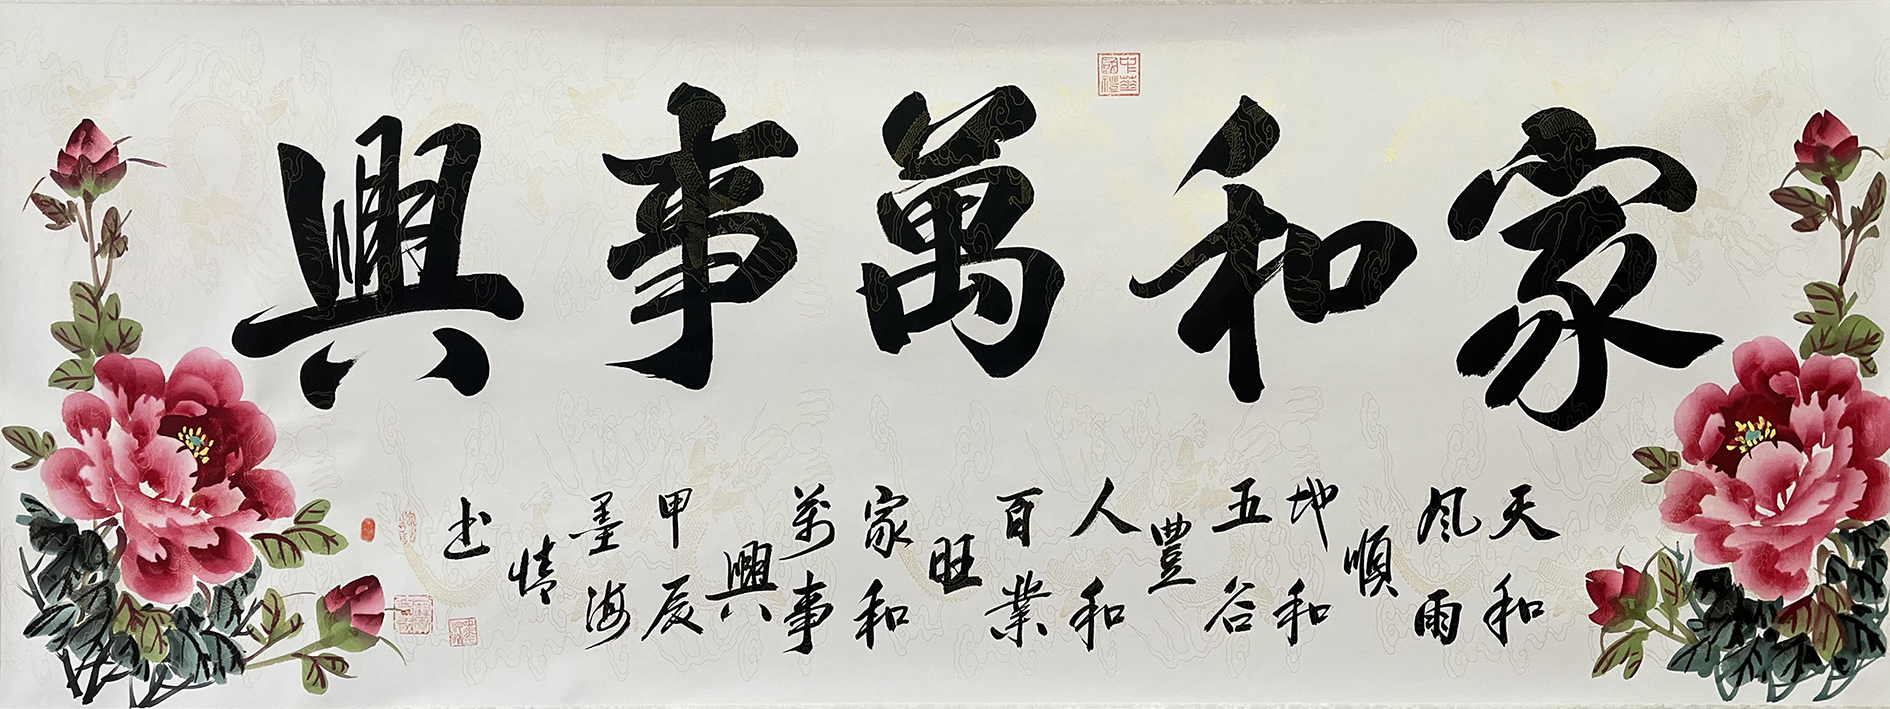 家和萬事興
中華國禮
天和
风雨
順
地和
五谷
豐
人和
百業
旺
家和
萬事
興
甲辰
墨海
情
书